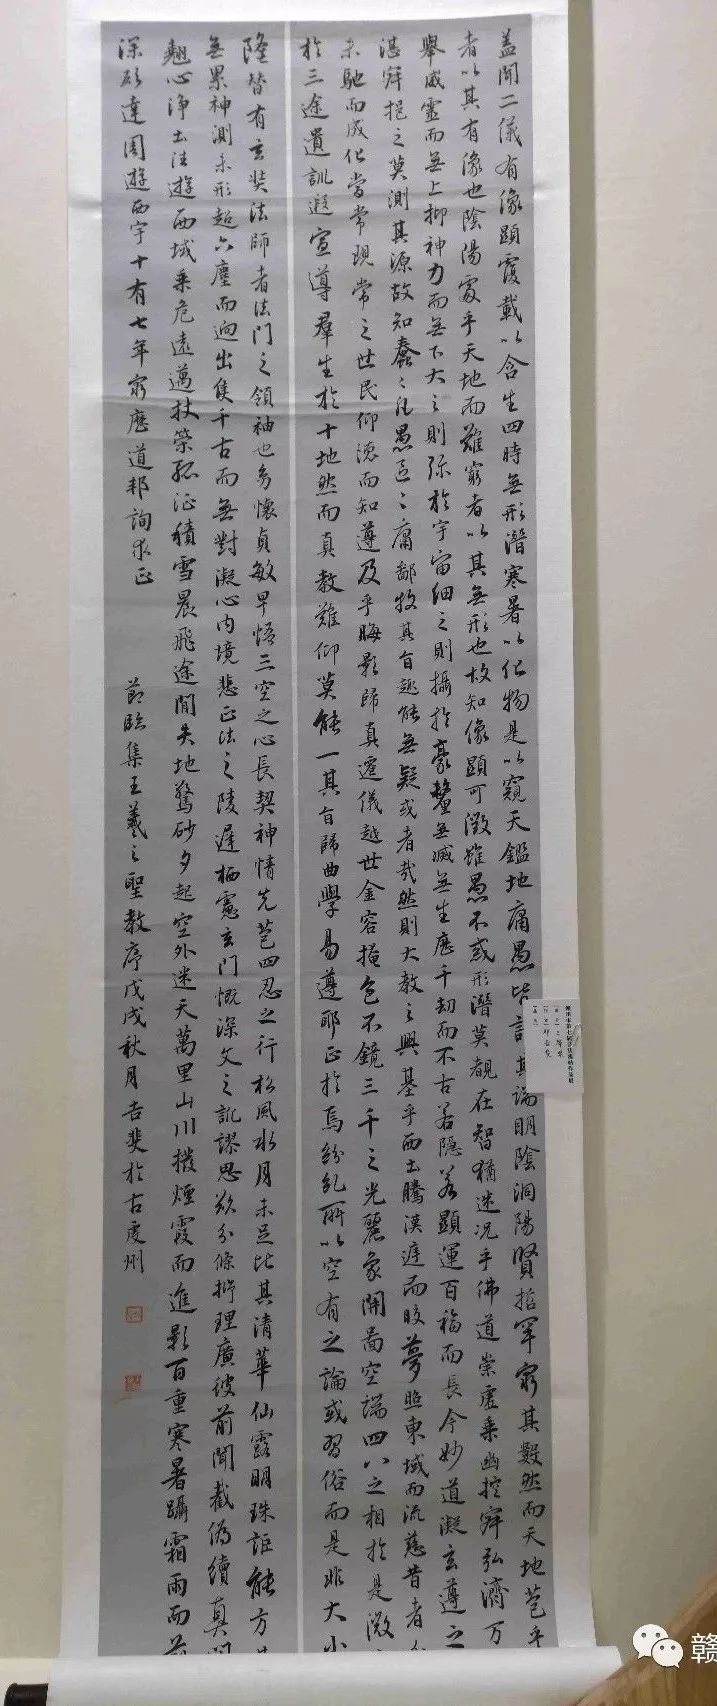 蓋聞二儀有像顯覆載以含生四時無形潛寒暑以化物是以窺天鑑地庸愚皆識其端明陰洞陽賢哲罕窮其數然而天地苞乎
者以其有像也陰陽處乎天地而難窮者以其無形也故知像顯可徵雖愚不惑形潛莫覩在智猶迷況乎佛道崇虛乘幽控寂弘濟万
舉威靈而無上抑神力而無下大之則弥於宇宙細之則攝於豪釐無滅無生歷千劫而不古若隱若顯運百福而長今妙道凝玄遵之
湛寂挹之莫測其源故知蠢〻凡愚區〻庸鄙投其旨趣能無疑或者哉然則大教之興基乎西土騰漢庭而皎夢照東域而流慈昔者分
未馳而成化當常現常之世民仰德而知遵及乎晦影歸真遷儀越世金容掩色不鏡三千之光麗象開圖空端四八之相於是微
於三途遺訓遐宣導群生於十地然而真教難仰莫能一其旨歸曲學易遵耶正於焉紛糺所以空有之論或習俗而是非大小
隆替有玄奘法師者法門之領袖也幼懷貞敏早悟三空之心長契神情先苞四忍之行松風水月未足比其清華仙露明珠詎能方其
無累神測未形超六塵而迥出隻千古而無對凝心內境悲正法之陵遲栖慮玄門慨深文之訛謬思欲分條析理廣彼前聞截偽續真開
翹心淨土法遊西域乘危遠邁杖策孤征積雪晨飛途閒失地驚砂夕起空外迷天萬里山川撥煙霞而進影百重寒暑躡霜雨而前
深願達周遊西宇十有七年窮歷道邦詢求正
節臨集王羲之聖教序戊戌秋月吉斐於古虔州
赣